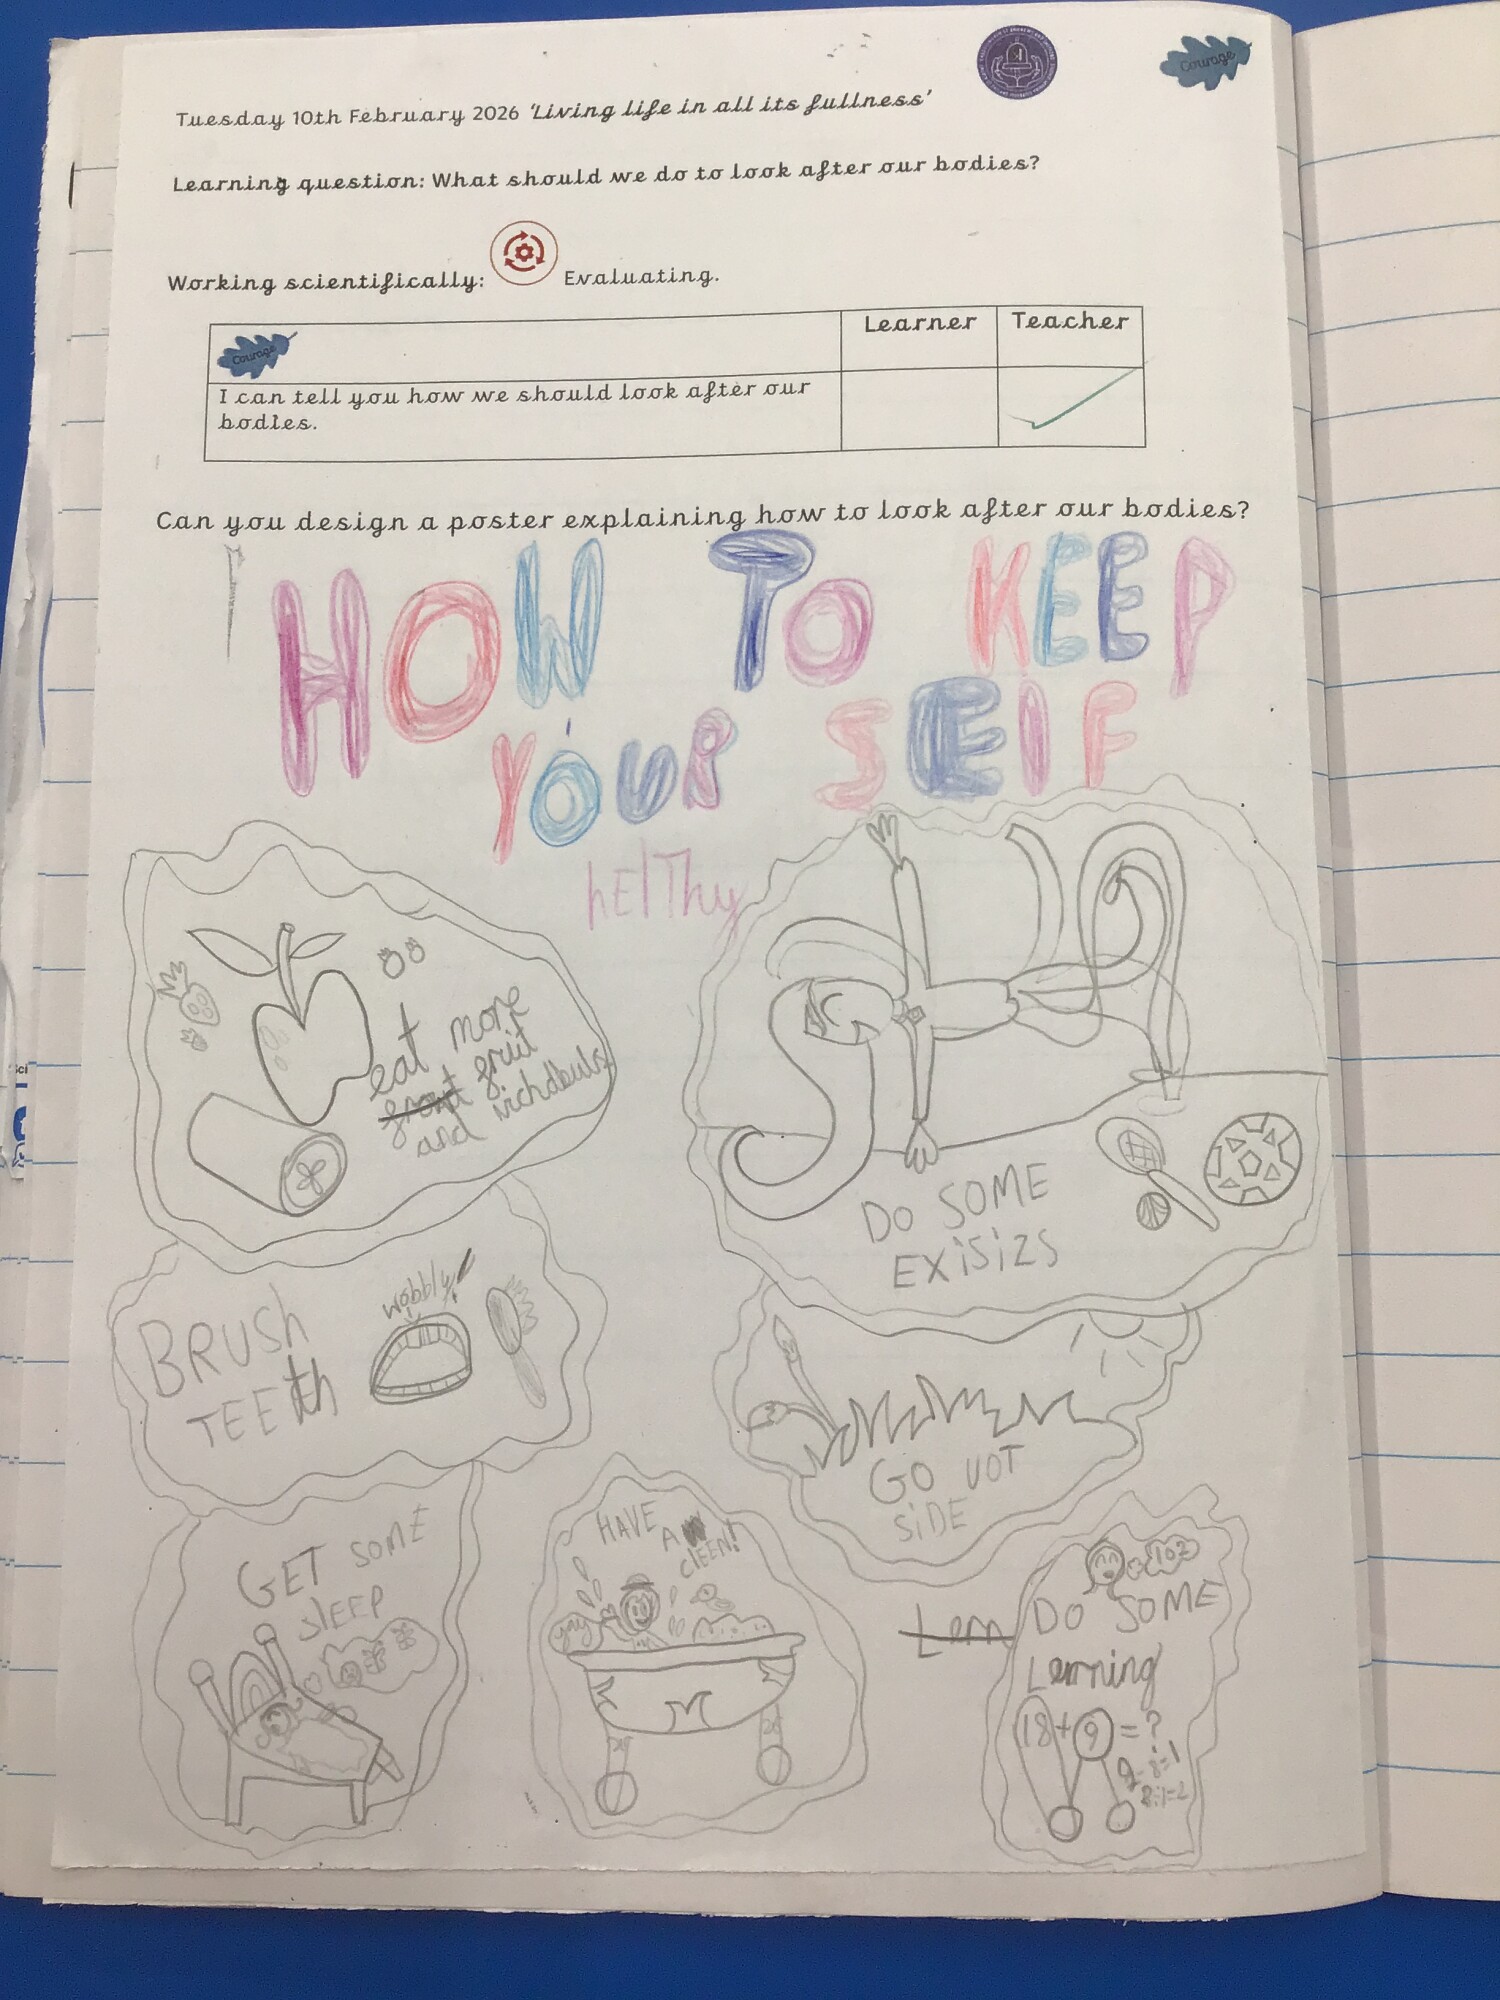 Courage
Tuesday 10th February 2026 'Living life in all its fullness'
Learning question: What should we do to look after our bodies?
Working scientifically: Evaluating.
Courage
Learner Teacher
I can tell you how we should look after our
bodies.
Can you design a poster explaining how to look after our bodies?
HOW TO KEEP
YOUR SElF
hElThy
eat more
fruit
and vichdbuls
DO SOME
EXiSiZS
BRUSh
TEEth
wobbly!
GO UOT
SiDE
GET SOME
SlEEP
HAVE A
ClEEN!
yay
102
Lern
DO SOME
Lerning
18+9=?